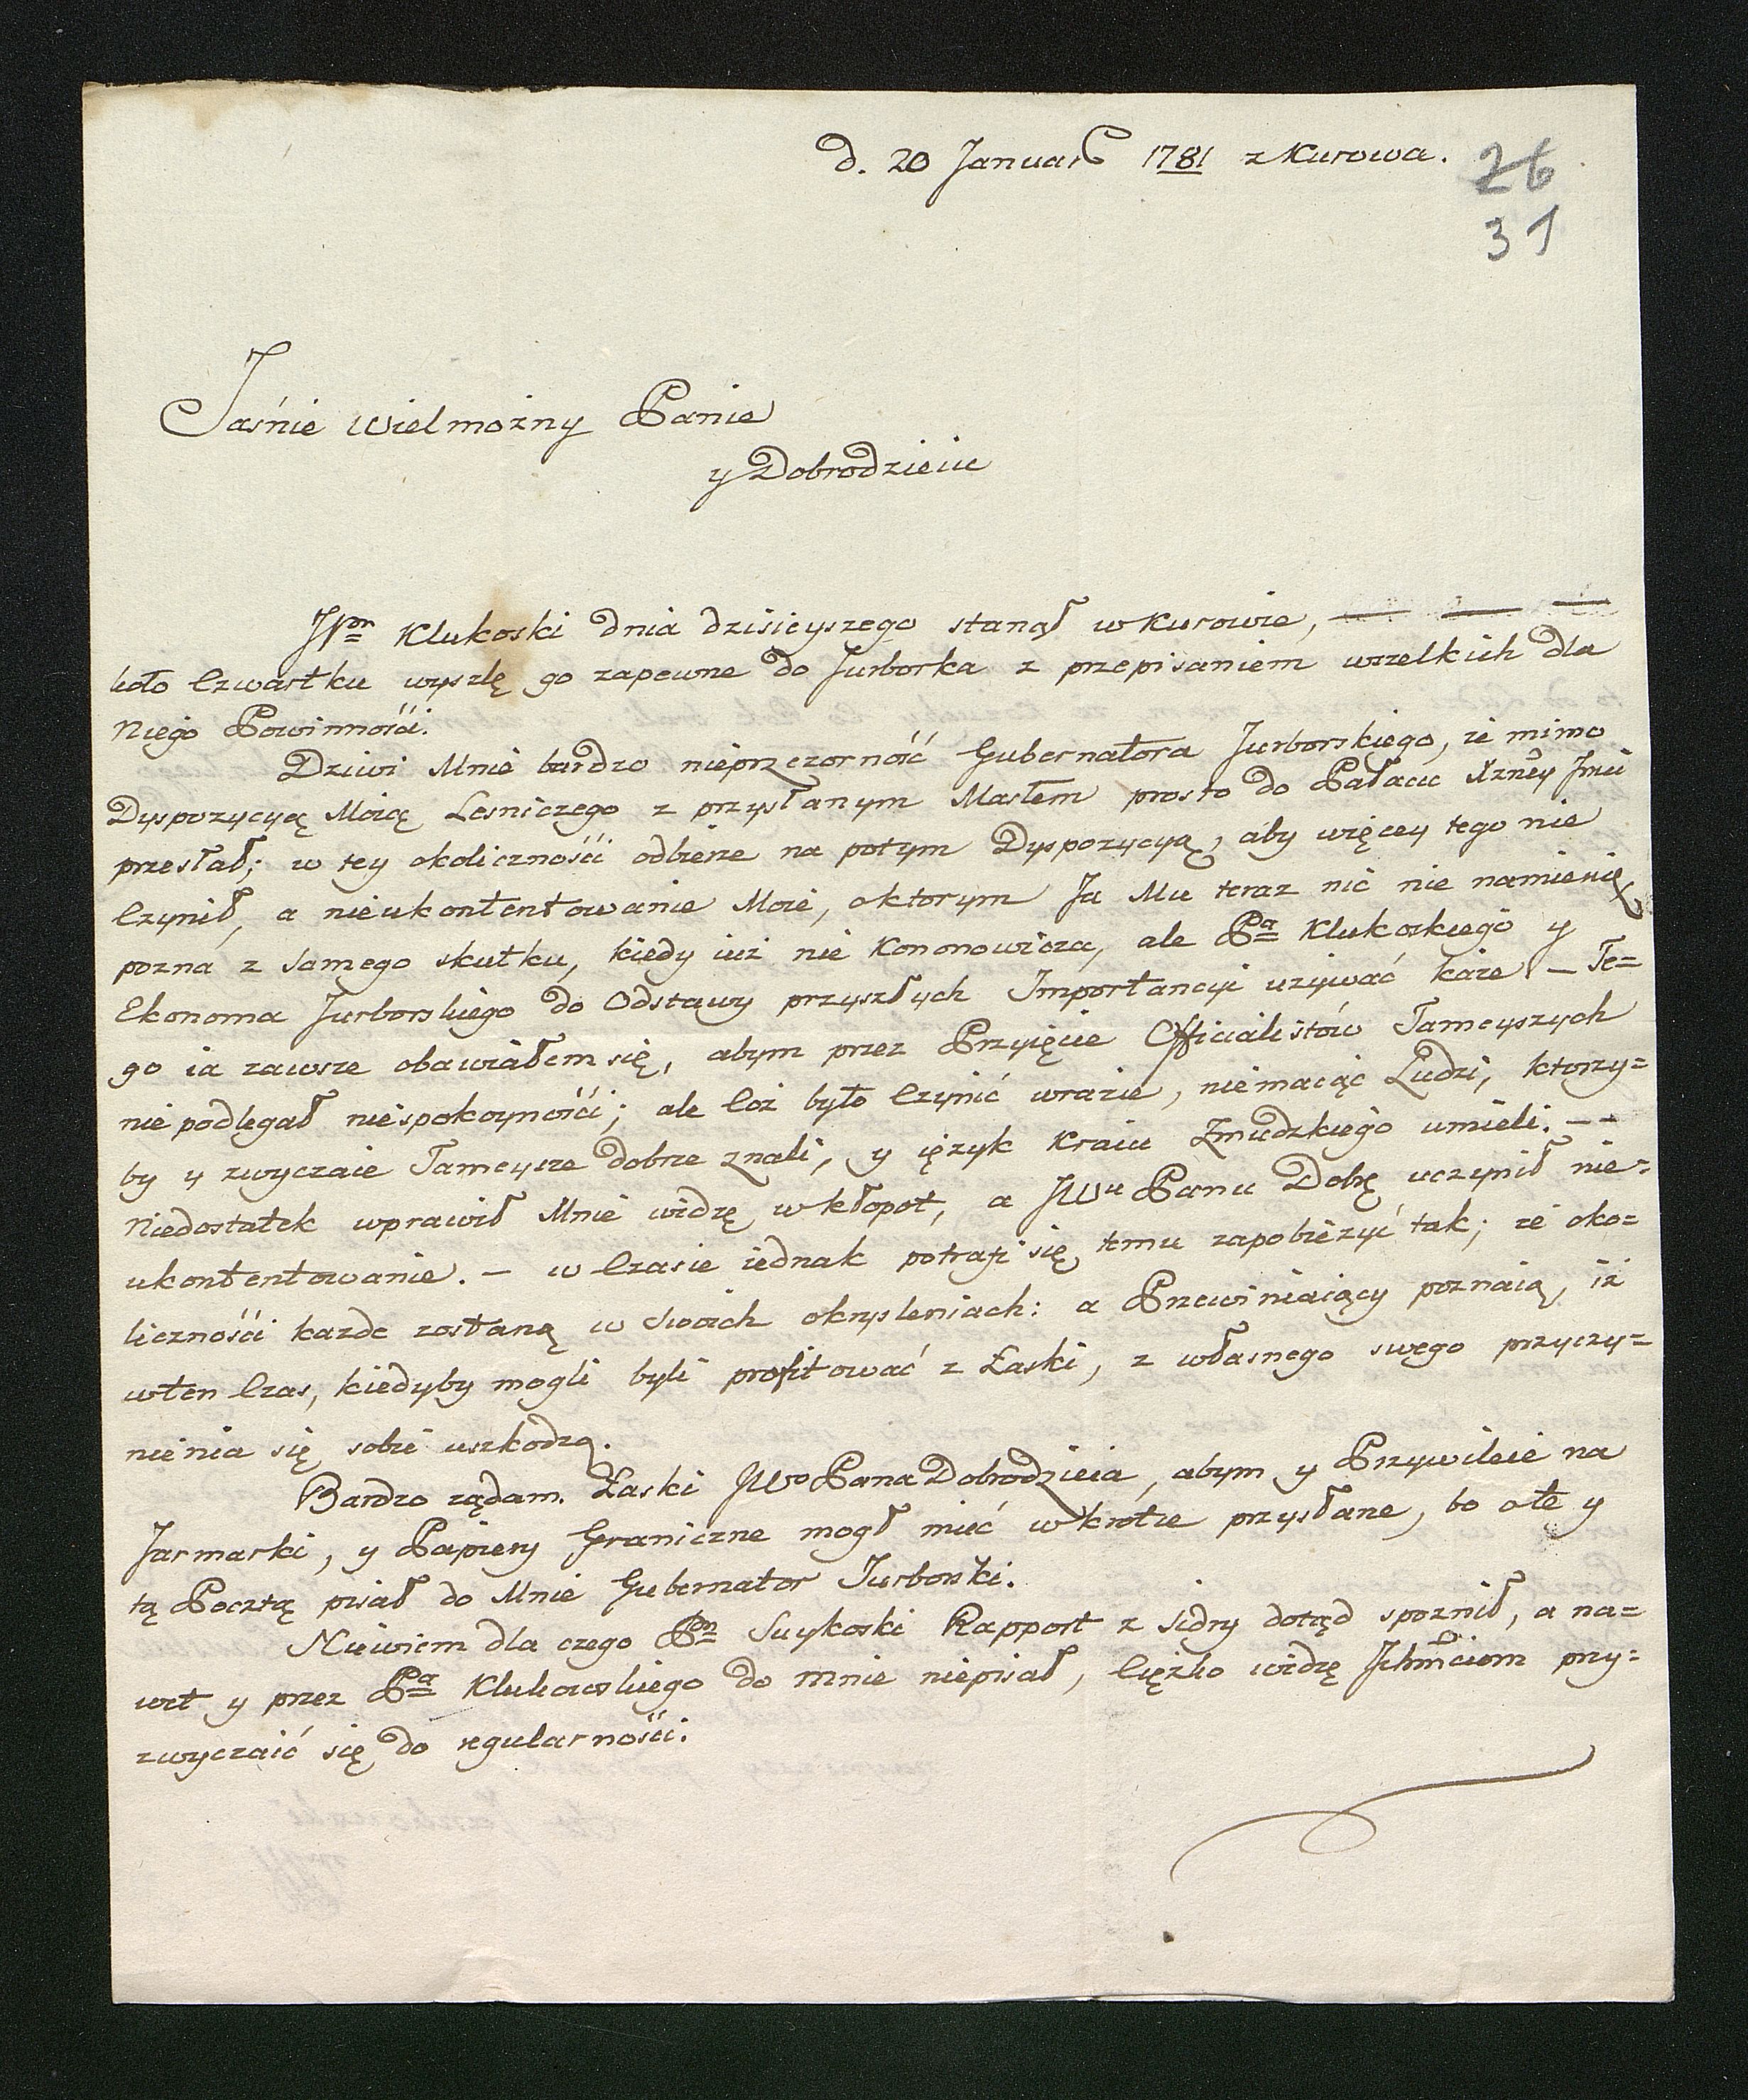 d. 20 Januar 1781 z Kurowa.
26
31
Jaśnie Wielmożny Panie
y Dobrodzieiu
JPan Klukoski dnia dzisieyszego stanął w Kurowie, — — —
koło Czwartku wyszlę go zapewne do Jurborka z przepisaniem wszelkich dla
Niego Powinnośći.
Dziwi Mnie bardzo nieprzezorność Gubernatora Jurborskiego, że mimo
Dyspozycyą Moią Lesniczego z przysłanym Masłem prosto do Pałacu Xżney Jmci
przesłał; w tey okolicznośći odbierze na potym Dyspozycyą, aby więcey tego nie
Czynił, a nieukontentowanie Moie, o ktorym Ja Mu teraz nic nie namienię
pozna z samego skutku, kiedy iuż nie Kononowicza, ale Pa Klukoskiego y
Ekonoma Jurborskiego do Odstawy przyszłych Importancyi używać każe — Te=
go ia zawsze obawiałem się, abym przez Przyięcie Officialistów Tameyszych
nie podlegał niespokoynośći; ale Coż było Czynić w razie, niemaiąc Ludzi, ktorzy=
by y zwyczaie Tameysze dobrze znali, y ięzyk Kraiu Zmudzkiego umieli. — —
Niedostatek wprawił Mnie widzę w kłopot, a JWu Panu Dobę uczynił nie=
ukontentowanie. — w Czasie iednak potrafi się temu zapobieżyć tak; że oko=
licznośći każde zostaną w Swoich okrysleniach: a Przewiniaiący poznaią, iż
w ten Czas, kiedyby mogli byli profitować z Łaski, z własnego swego przyczy=
nienia się sobie uszkodzą.
Bardzo żądam Łaski JWo Pana Dobrodzieia, abym y Przywileie na
Jarmarki, y Papiery Graniczne mogł mieć w krotce przysłane, bo o te y
tą Pocztą pisał do Mnie Gubernator Jurborski.
Niewiem dla czego Pan Suykoski Rapport z Sidry dotąd spoznił, a na=
wet y przez Pa Klukowskiego do mnie niepisał, Ciężko widzę Jchmciom przy=
zwyczaić się do regularnośći.